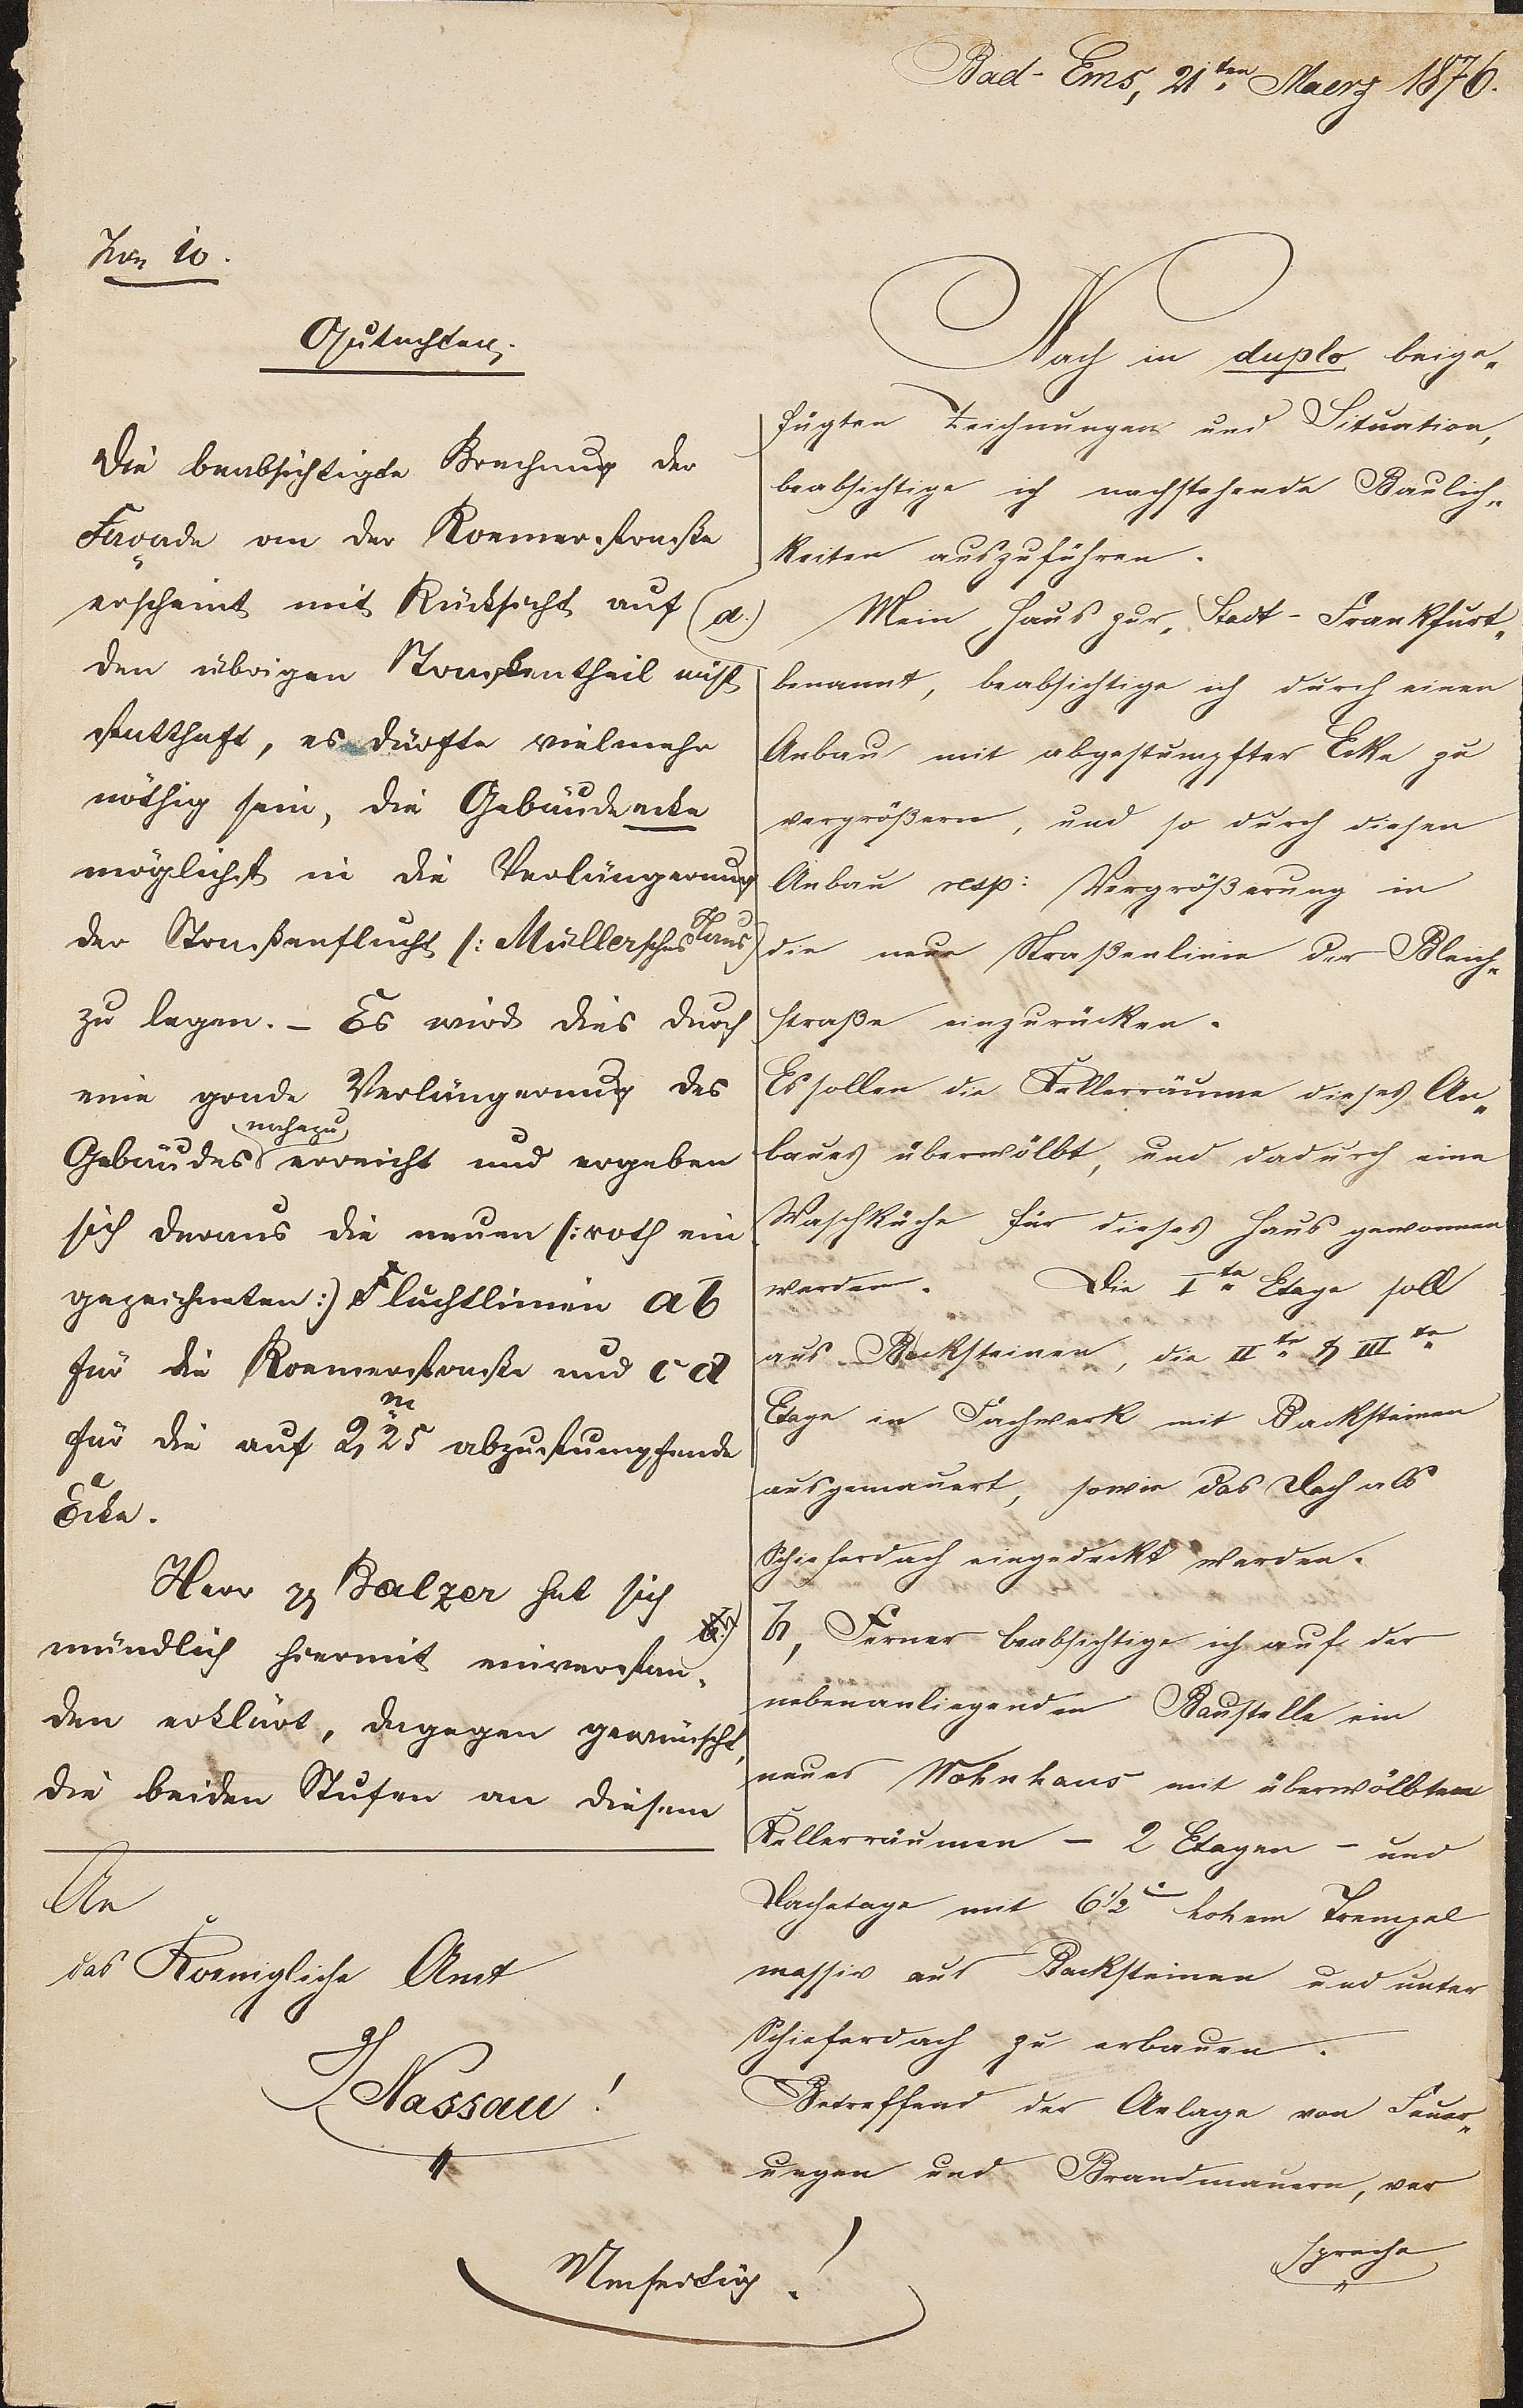 Bad-Ems, 21ten Maerz 1876.
10.
Gutachten.
Die beabsichtigte Brechung der
Façade an der Roemerstraße
erscheint mit Rücksicht auf
den übrigen Straßentheil nicht
statthaft, es dürfte vielmehr
nöthig sein, die Gebäudeecke
möglichst in die Verlängerung
der Straßenflucht /: Müllersches Haus)
zu legen. – Es wird dies durch
eine grade Verlängerung des
Gebäudes nahezu erreicht und ergeben
sich daraus die neuen /: roth ein
gezeichneten :) Fluchtlinien a b
für die Roemerstraße und c d
für die auf 2,25 m abzustumpfende
Ecke.
Herr Balzer hat sich
mündlich hiermit einverstan„
den erklärt, dagegen gewünscht,
die beiden Stufen an diesem
An
das Koenigliche Amt
Nassau!
Nach in duplo beige„
fügten Zeichnungen und Situation,
beabsichtige ich nachstehende Baulich„
keiten auszuführen.
(a.) Mein Haus zur „Stadt-Frankfurt„
benannt, beabsichtige ich durch einen
Anbau mit abgestumpfter Ecke zu
vergrößern, und so durch diesen
Anbau resp: Vergrößerung in
die neue Straßenlinie der Bleich„
straße einzurücken.
Es sollen die Kellerräume dieses An„
baues überwölbt, und dadurch eine
Waschküche für dieses Haus gewonnen
werden. Die Ite Etage soll
aus Backsteinen, die IIte & IIIte
Etage in Fachwerk mit Backsteinen
ausgemauert, sowie das Dach als
Schieferdach eingedeckt werden.
b, Ferner beabsichtige ich auf der
nebenanliegenden Baustelle ein
neues Wohnhaus mit überwölbten
Kellerräumen – 2 Etagen – und
Dachetage mit 6½' hohem Trempel
massiv aus Backsteinen und unter
Schieferdach zu erbauen.
Betreffend der Anlage von Feuer„
ungen und Brandmauern, ver
spreche
Umseitig!